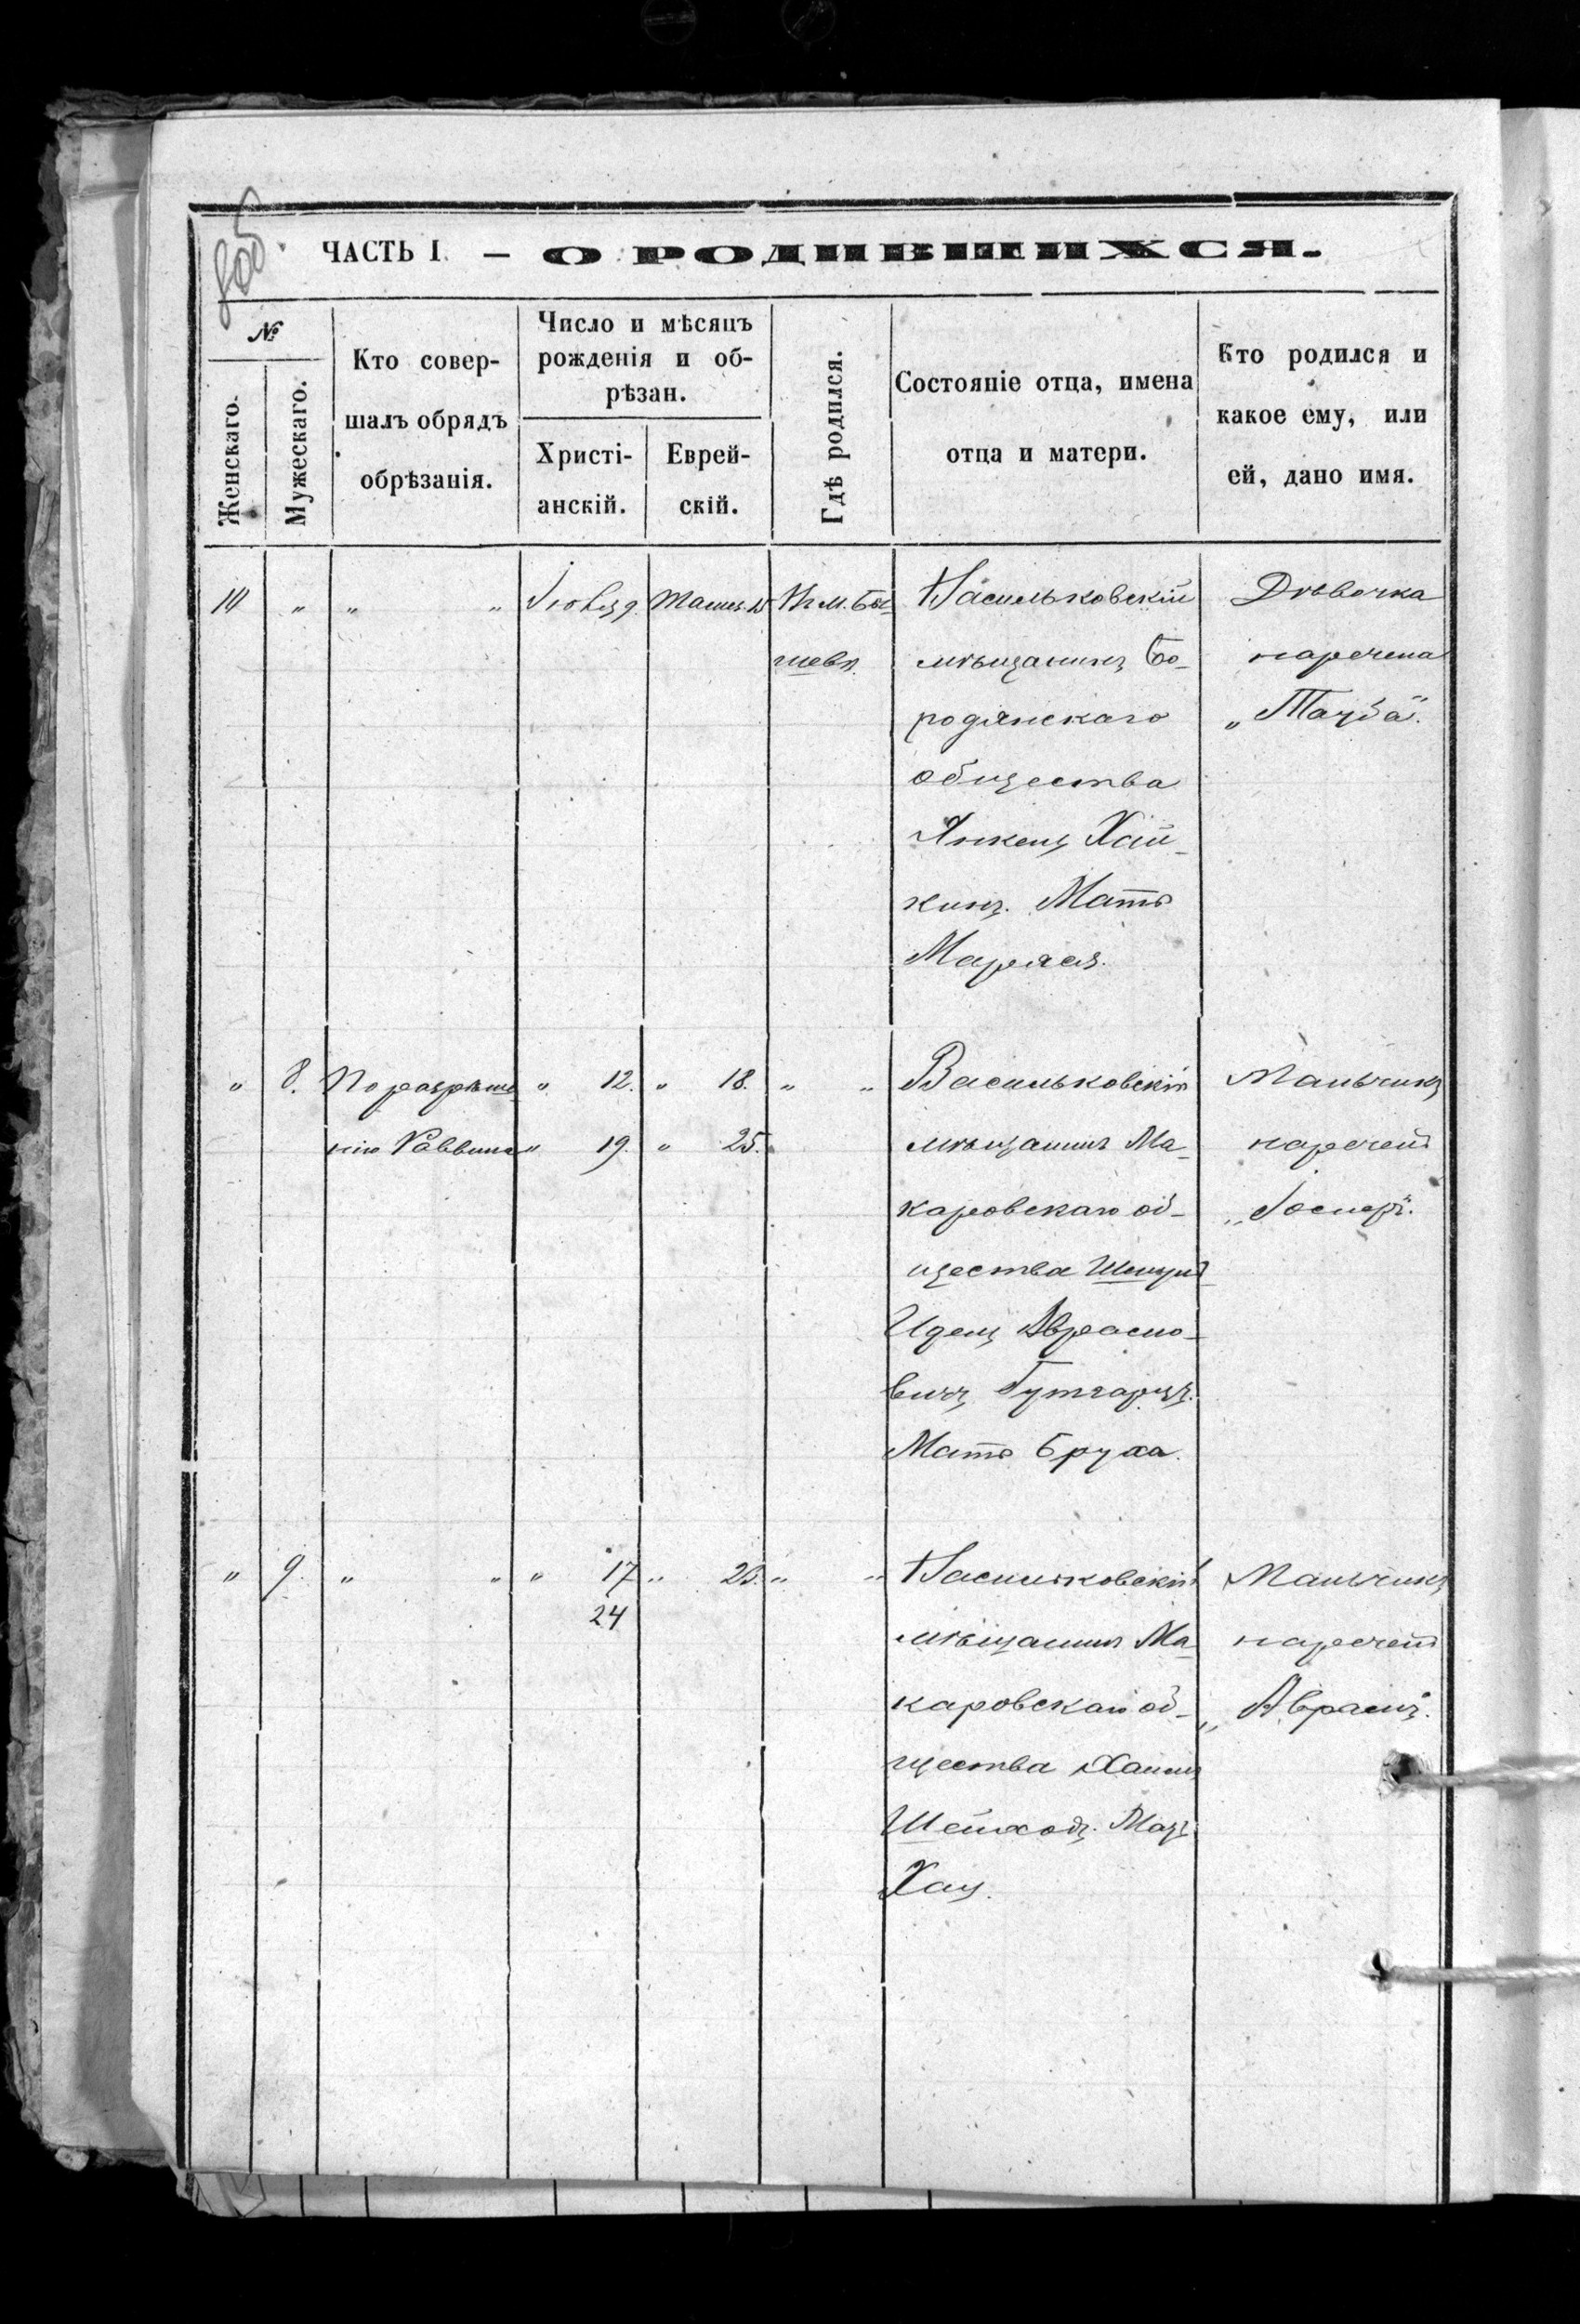 805
ЧАСТЬ I. — О РОДИВШИХСЯ.
№
Женскаго.
Мужескаго.
Кто совер-
шалъ обрядъ
обрѣзанія.
Число и мѣсяцъ
рожденія и об-
рѣзан.
Христі-
анскій.
Еврей-
скій.
Гдѣ родился.
Состояніе отца, имена
отца и матери.
Кто родился и
какое ему, или
ей, дано имя.
10 " " " Іюня 9. 15 В м. Бы-
шевѣ.
Васильковскій
мѣщанинъ Бо-
родянскаго
общества
Янкель Хай-
кинъ. Мать
Маріася.
Дѣвочка
наречена
„Тауба".
" 8. По разрѣше " 12. " 18. " "
нію Раввина " 19. " 25.
Васильковскій
мѣщанинъ Ма-
каровскаго об-
щества Шмуль
Идель Аврамо-
вичъ Гутгарцъ.
Мать Бруха.
Мальчикъ
нареченъ
„Іосифъ".
" 9. " " " 17 " 23. " "
24
Васильковскій
мѣщанинъ Ма-
каровскаго об-
щества Хаимъ
Мать
Хая.
Мальчикъ
нареченъ
„Аврамъ".